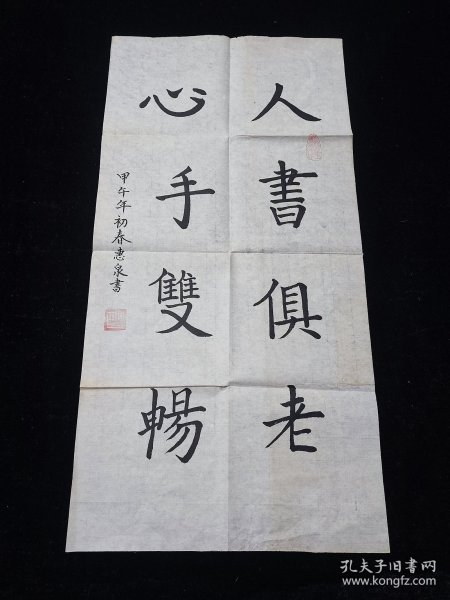 人書俱老
心手雙暢
甲午年初春惠泉書
孔夫子旧书网
www.kongfz.com